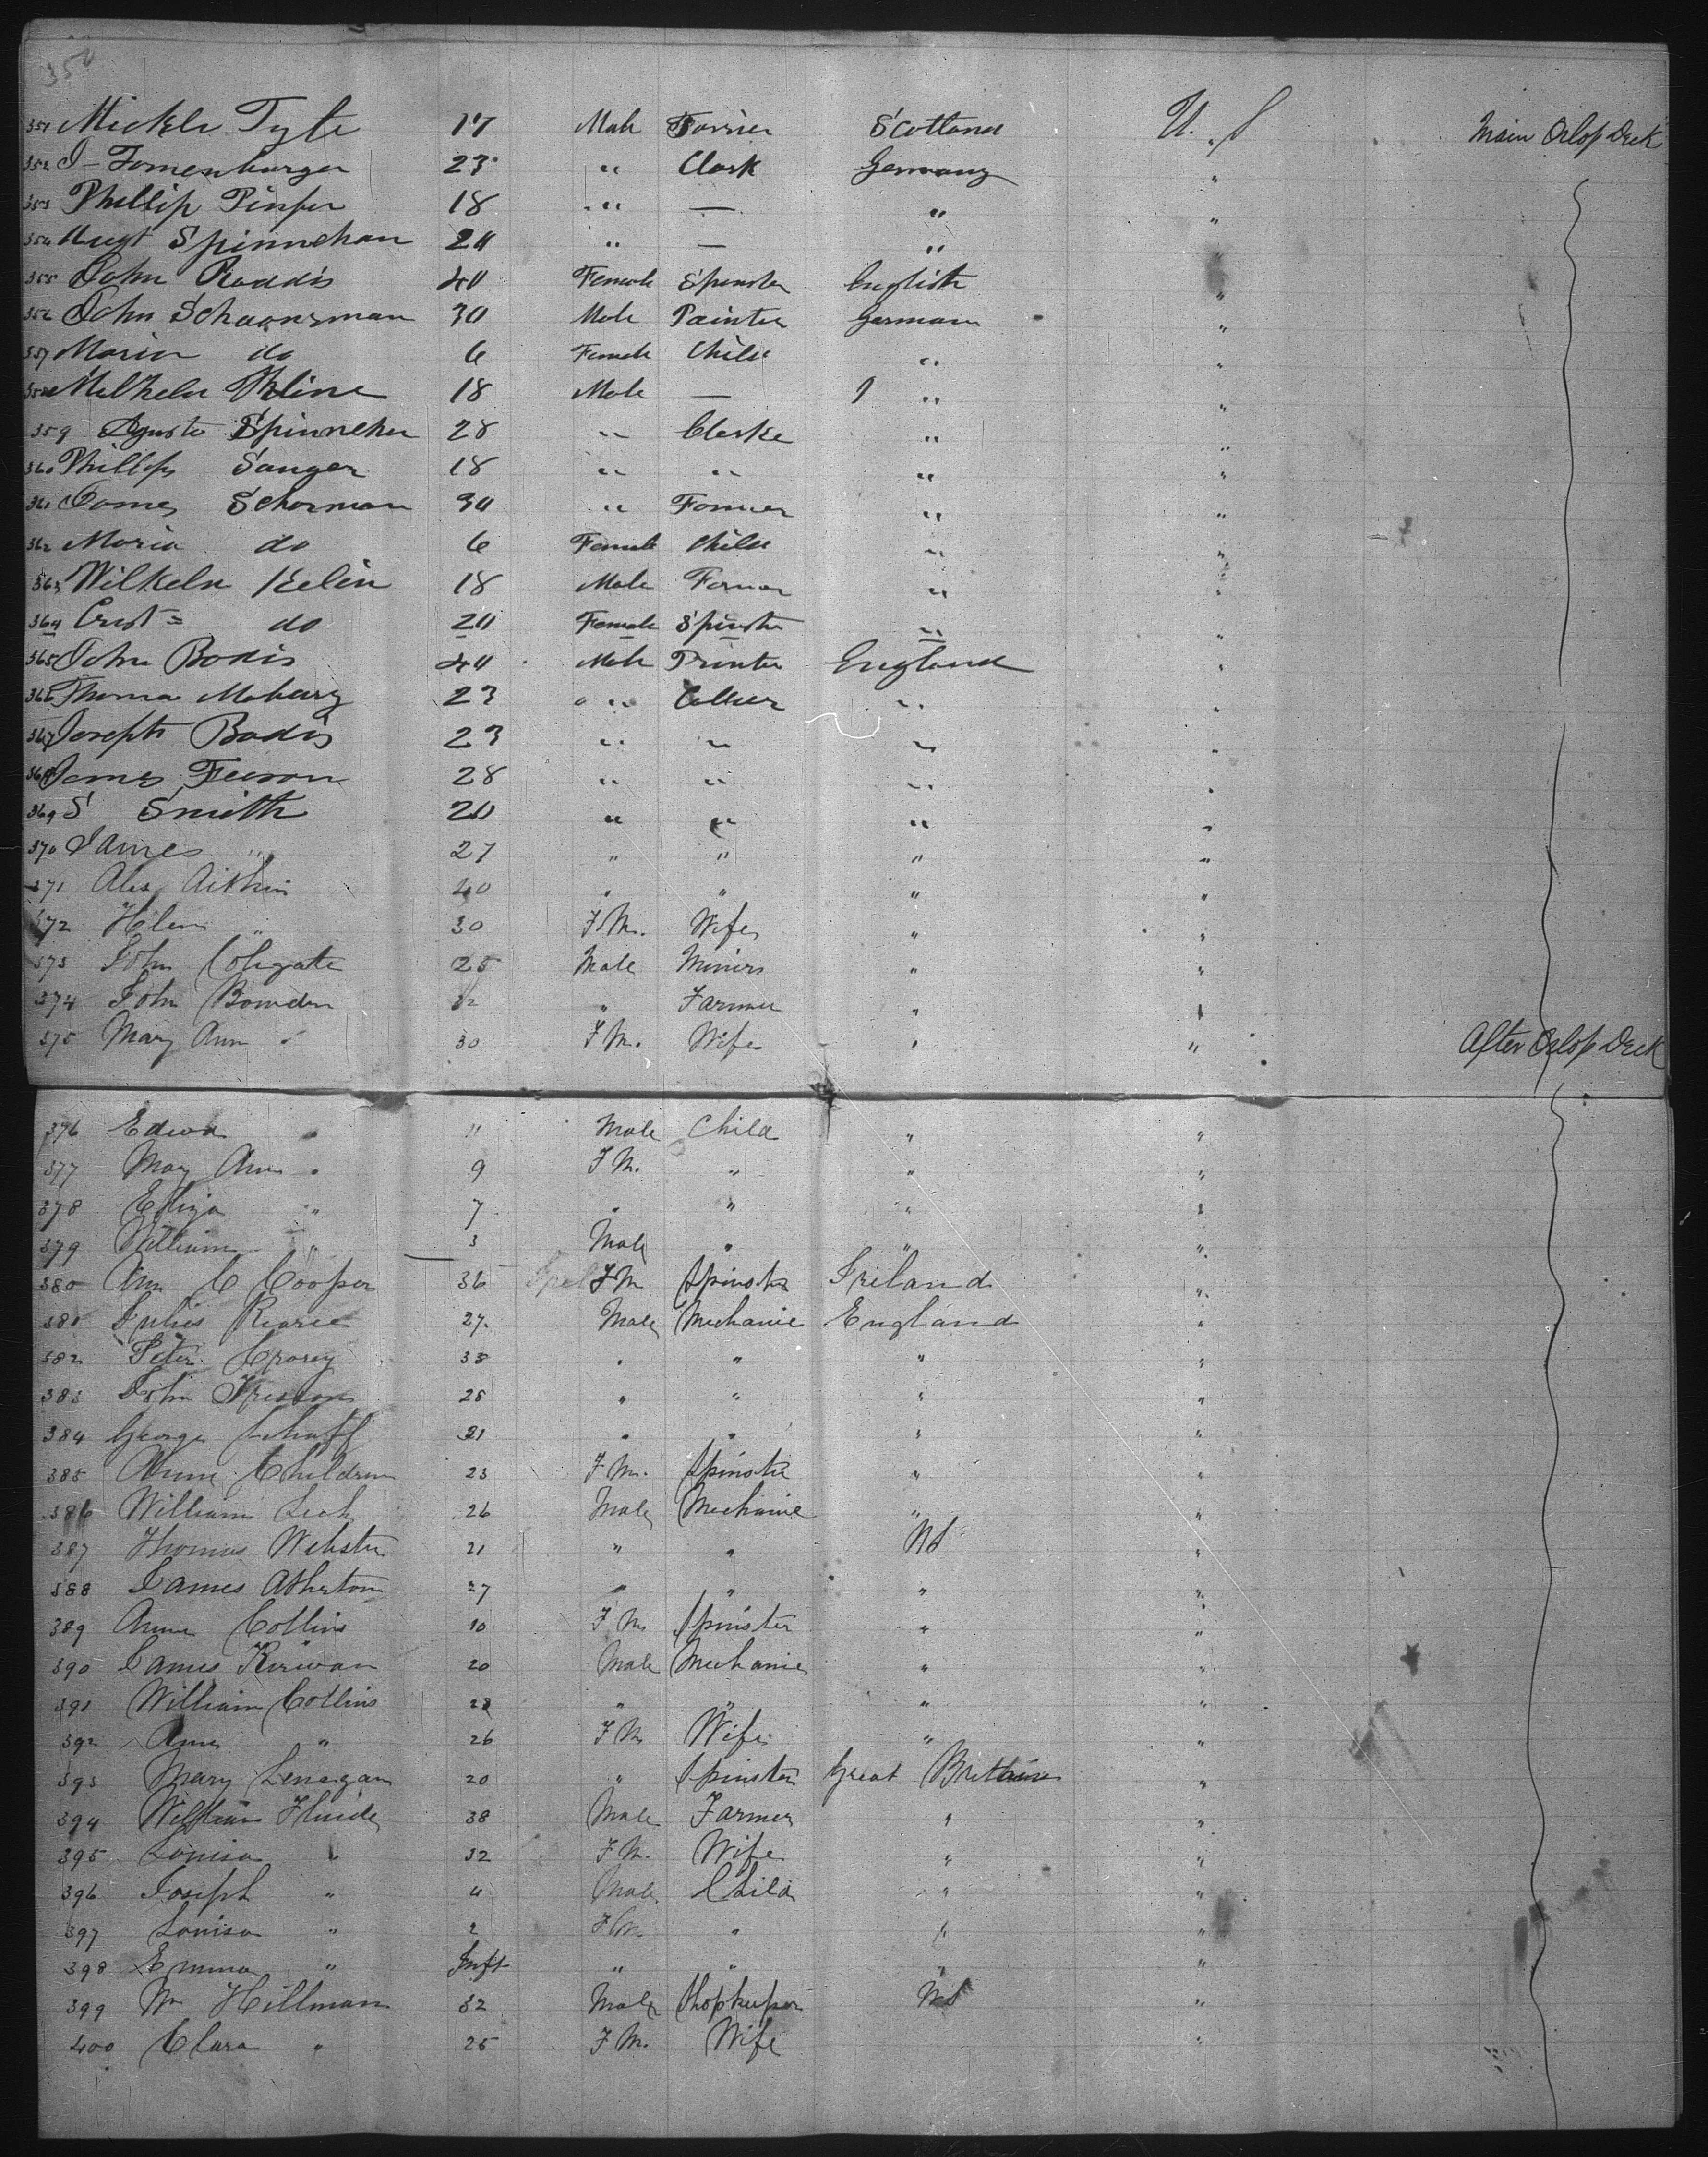 350
351 Mickle Tyte 17 Male Farrier Scotland U. S Main Orlop Deck
352 I - Fomenburger 23 " Clark Germany "
353 Phillip Pinfer 18 " — " "
354 Augt Spinnehan 24 " — " "
355 John Roddis 40 Female Spinster English "
356 John Schaarman 30 Male Painter German "
357 Maria do 6 Female Child " "
358 Kline 18 Male — " "
359 Aguste Spinneker 28 " Clerke " "
360 Phillip Sanger 18 " " " "
361 James Schorman 30 " Farmer " "
362 Maria do 6 Female Child " "
363 Wilkelm Kelin 18 Male Farmer " "
364 Crist = do 20 Female Spinster " "
365 John Bodis 40 Male Printer England "
366 Thomas 23 " Collier " "
367 Joseph Bodis 23 " " " "
368 James Feeron 28 " " " "
369 S Smith 20 " " " "
370 James " 27 " " " "
371 Alex Aithin 40 " " " "
372 Helen " 30 F M. Wife " "
373 John Colegate 25 Male Miners " "
374 John Bowden 32 " Farmer " "
375 Mary Ann " 30 F M. Wife " " After Orlop Deck
376 Edwd " 11 Male Child " "
377 May Ann " 9 F M. " " "
378 Eliza " 7 " " " "
379 William " 3 Male " " "
380 Ann C Cooper 36 F M Spinster Ireland "
381 Julies Rearie 27 Male Mechanic England "
382 Peter Crosey 38 " " " "
383 John 28 " " " "
384 George Schaff 21 " " " "
385 Anne Children 23 F M. Spinster " "
386 William Leah 26 Male Mechanic " "
387 Thomas Webster 21 " " "
388 James Atherton 27 " " " "
389 Anne Collins 10 F M Spinster " "
390 James Kirwan 20 Male Mechanic " "
391 William Collins 28 " " " "
392 Anne " 26 F M Wife " "
393 Mary Lenegan 20 " Spinster Great Brittain "
394 William 38 Male Farmer " "
395 Louisa " 32 F M. Wife " "
396 Joseph " 4 Male Child " "
397 Louisa " 2 F M. " " "
398 Emma " Inft " " " "
399 Wm Hillman 32 Male Shopkeeper "
400 Clara " 25 F M. Wife "